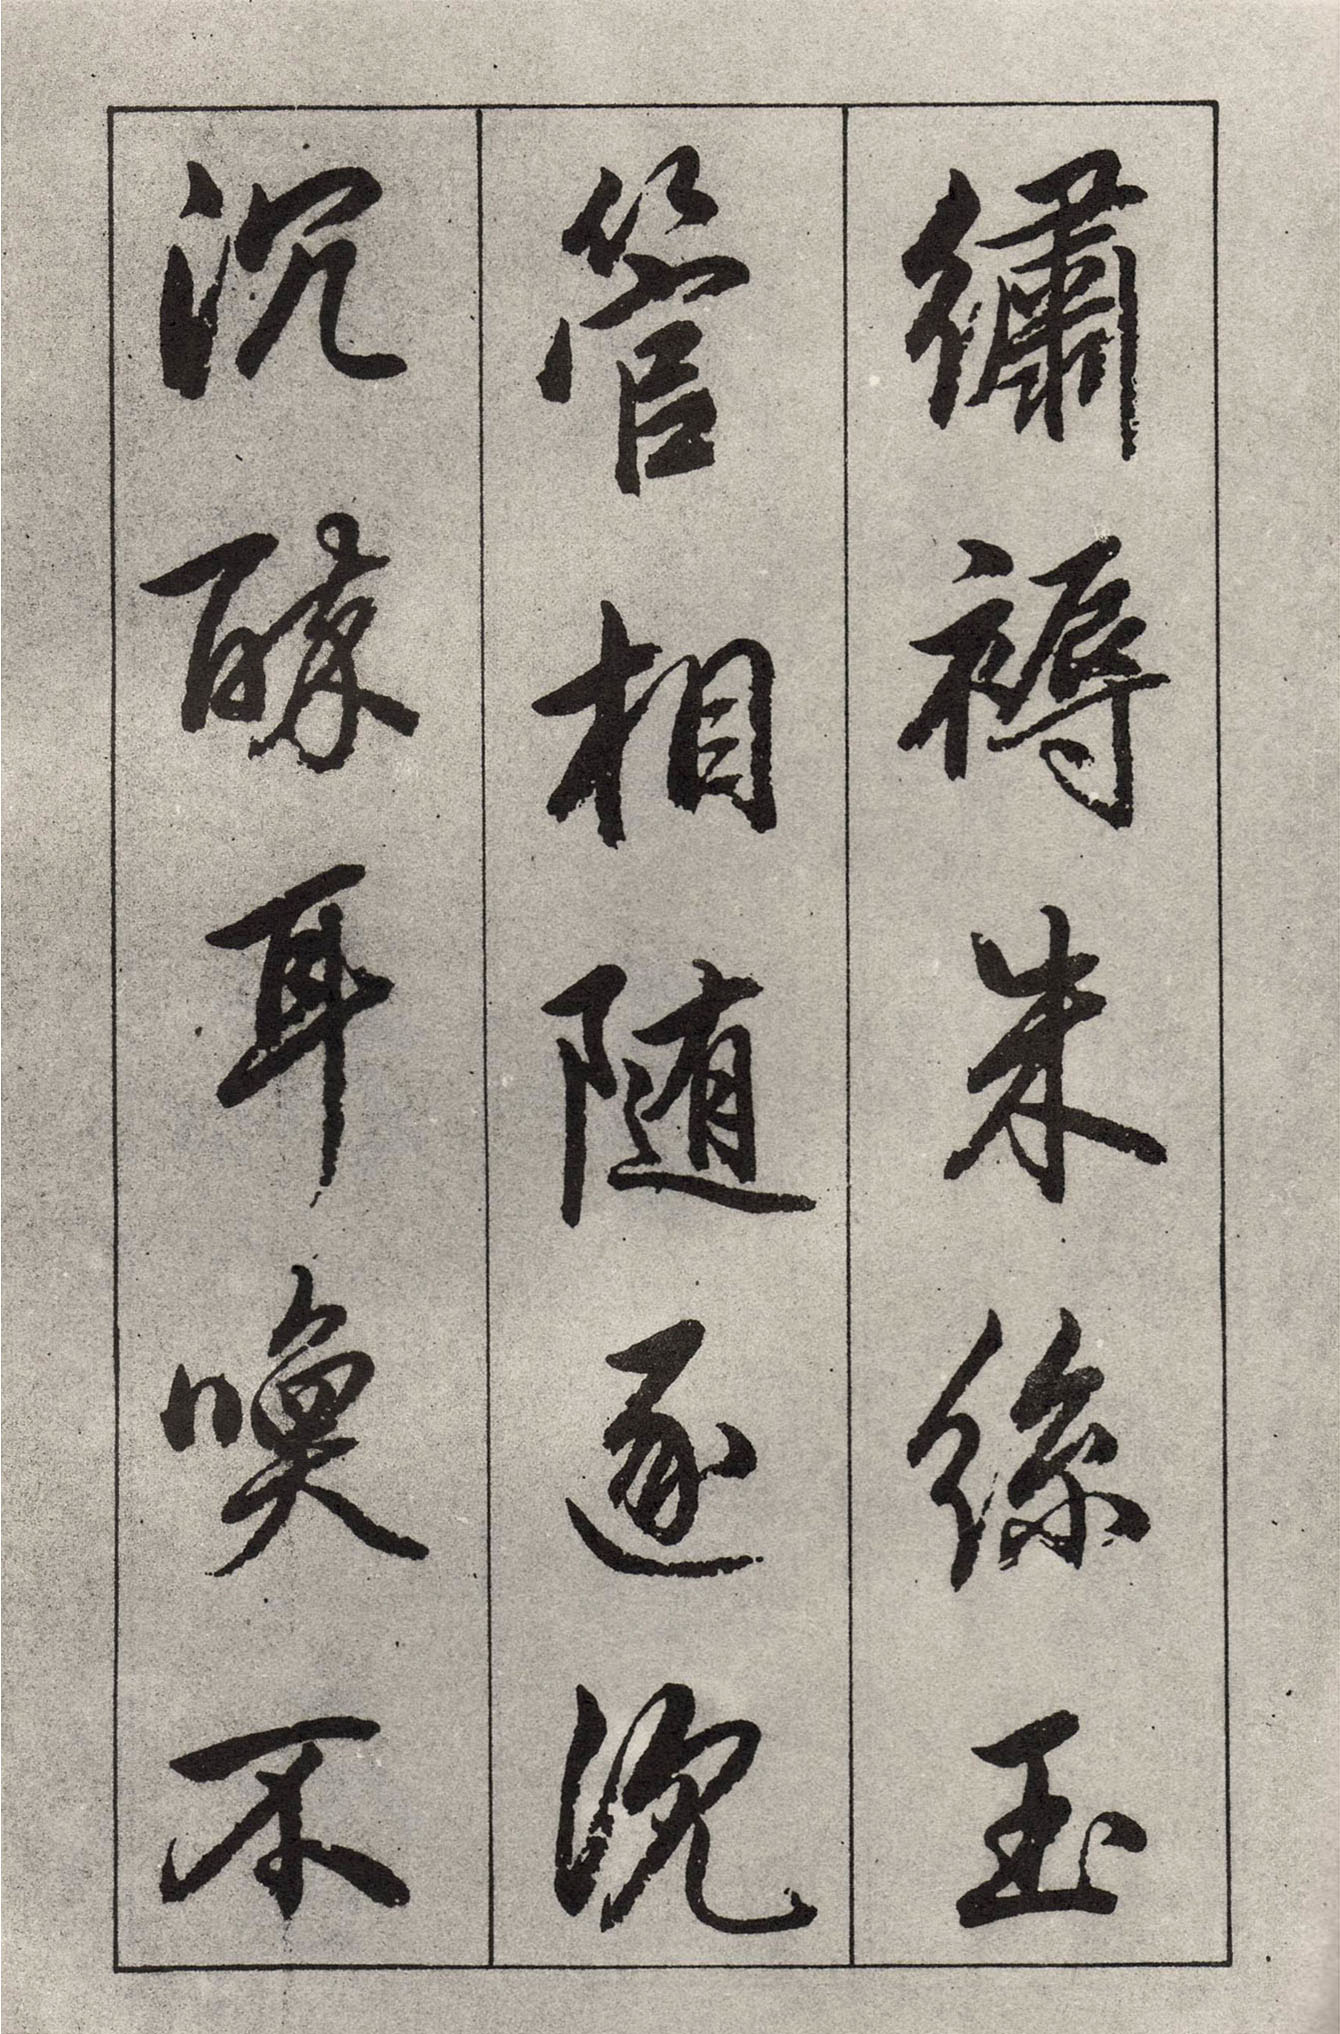 繡褥朱絲玉
管相隨逐沉
沉醉耳喚不